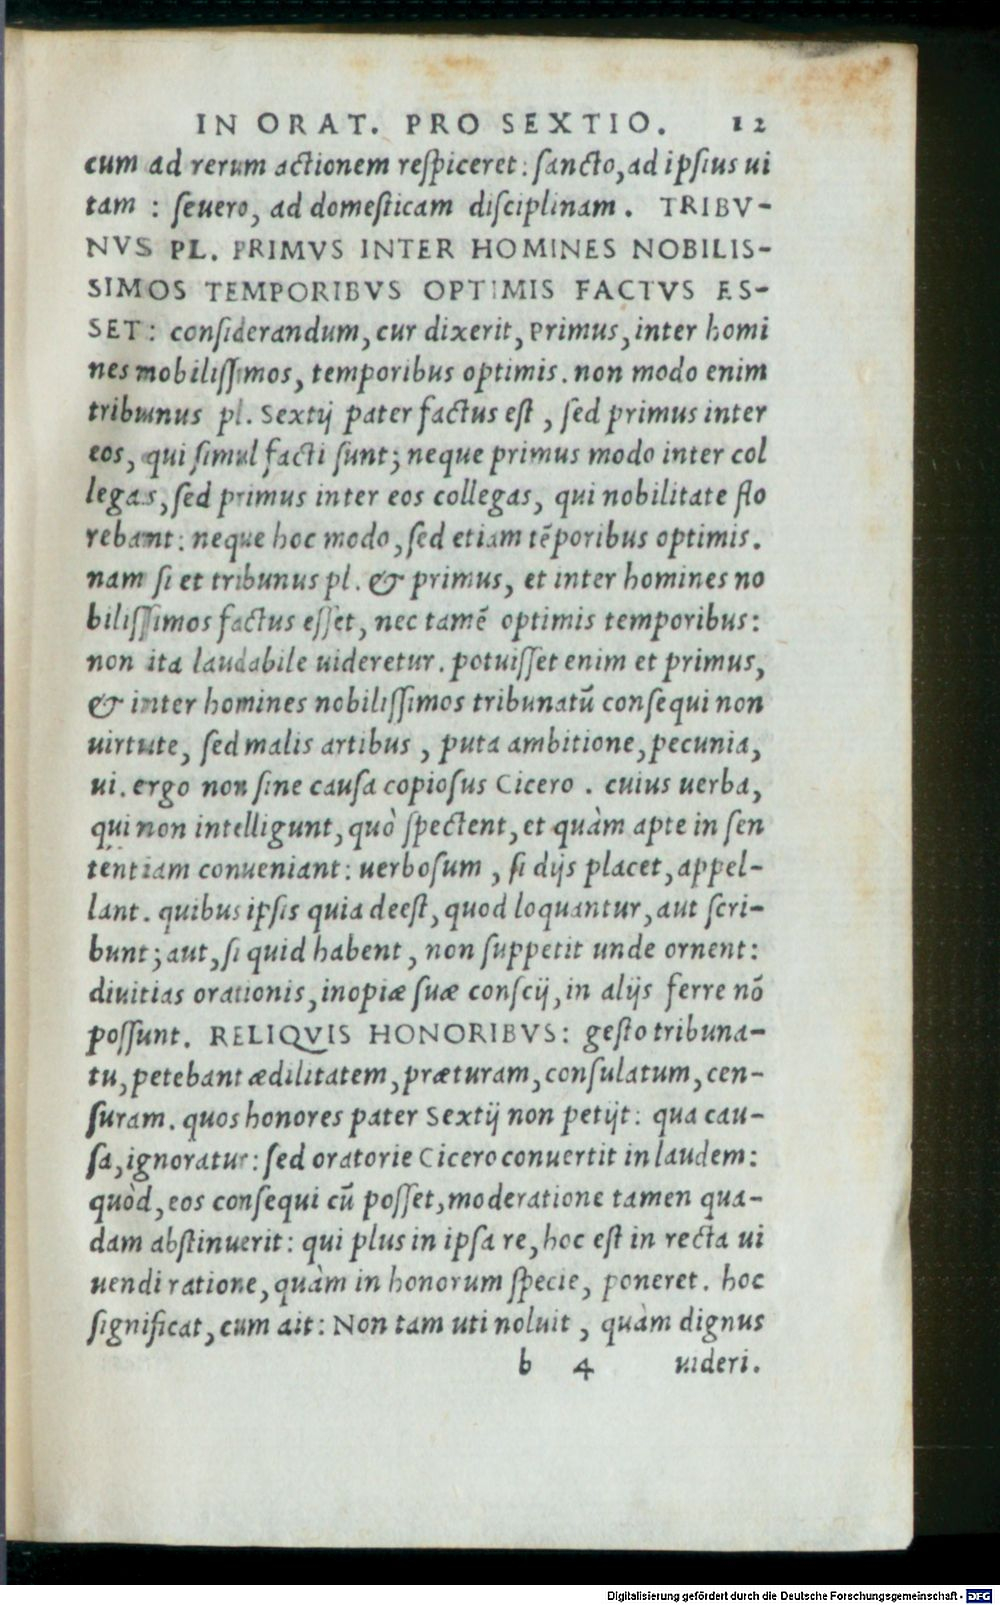 IN ORAT. PRO SEXTIO. 12
cum ad rerum actionem respiceret: sancto, ad ipsius ui
tam : seuero, ad domesticam disciplinam. TRIBV-
NVS PL. PRIMVS INTER HOMINES NOBILIS-
SIMOS TEMPORIBVS OPTIMIS FACTVS ES-
SET: considerandum, cur dixerit, Primus, inter homi
nes mobilissimos, temporibus optimis. non modo enim
tribunus pl. Sextij pater factus est, sed primus inter
eos, qui simul facti sunt; neque primus modo inter col
legas, sed primus inter eos collegas, qui nobilitate flo
rebant: neque hoc modo, sed etiam tẽporibus optimis.
nam si et tribunus pl. & primus, et inter homines no
bilissimos factus esset, nec tamẽ optimis temporibus:
non ita laudabile uideretur. potuisset enim et primus,
& inter homines nobilissimos tribunatũ consequi non
uirtute, sed malis artibus, puta ambitione, pecunia,
ui. ergo non sine causa copiosus Cicero. cuius uerba,
qui non intelligunt, quò spectent, et quàm apte in sen
tentiam conueniant: uerbosum, si dijs placet, appel-
lant. quibus ipsis quia deest, quod loquantur, aut scri-
bunt; aut, si quid habent, non suppetit unde ornent:
diuitias orationis, inopiæ suæ conscij, in alijs ferre nõ
possunt. RELIQVIS HONORIBVS: gesto tribuna-
tu, petebant ædilitatem, præturam, consulatum, cen-
suram. quos honores pater Sextij non petijt: qua cau-
sa, ignoratur: sed oratorie Cicero conuertit in laudem:
quòd, eos consequi cũ posset, moderatione tamen qua-
dam abstinuerit: qui plus in ipsa re, hoc est in recta ui
uendi ratione, quàm in honorum specie, poneret. hoc
significat, cum ait: Non tam uti noluit, quàm dignus
b 4 uideri.
Digitalisierung gefördert durch die Deutsche Forschungsgemeinschaft - DFG